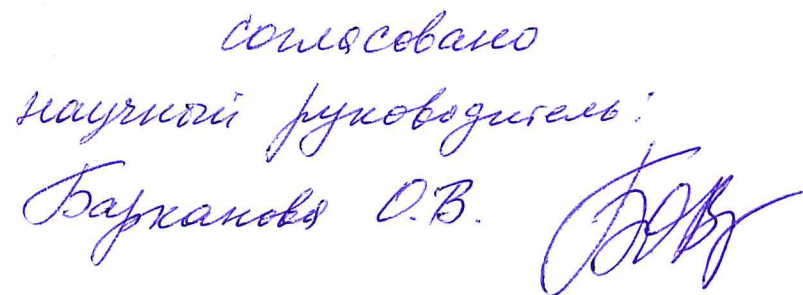 согласовано
научный руководитель:
Барканова О.В.